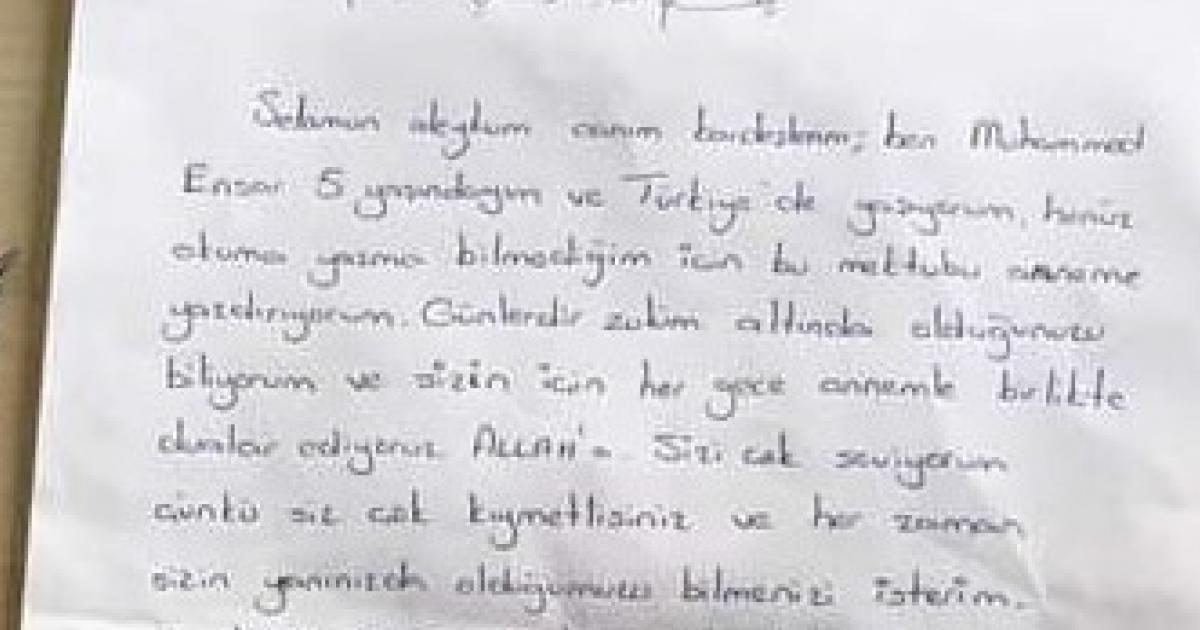 Selamun aleyküm canım kardeşlerim; ben Muhammed
Ensar 5 yaşındayım ve Türkiye'de yaşıyorum, henüz
okuma yazma bilmediğim için bu mektubu anneme
yazdırıyorum. Günlerdir zulüm altında olduğunuzu
biliyorum ve sizin için her gece annemle birlikte
dualar ediyoruz ALLAH'a. Sizi çok seviyorum
çünkü siz çok kıymetlisiniz ve her zaman
sizin yanınızda olduğumuzu bilmenizi isterim.